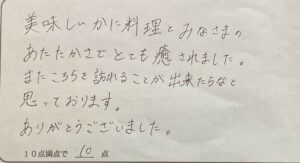 美味しいかに料理とみなさまの
あたたかさでとても癒されました。
またこちらを訪れることが出来たらなと
思っております。
ありがとうございました。
10点満点で 10 点